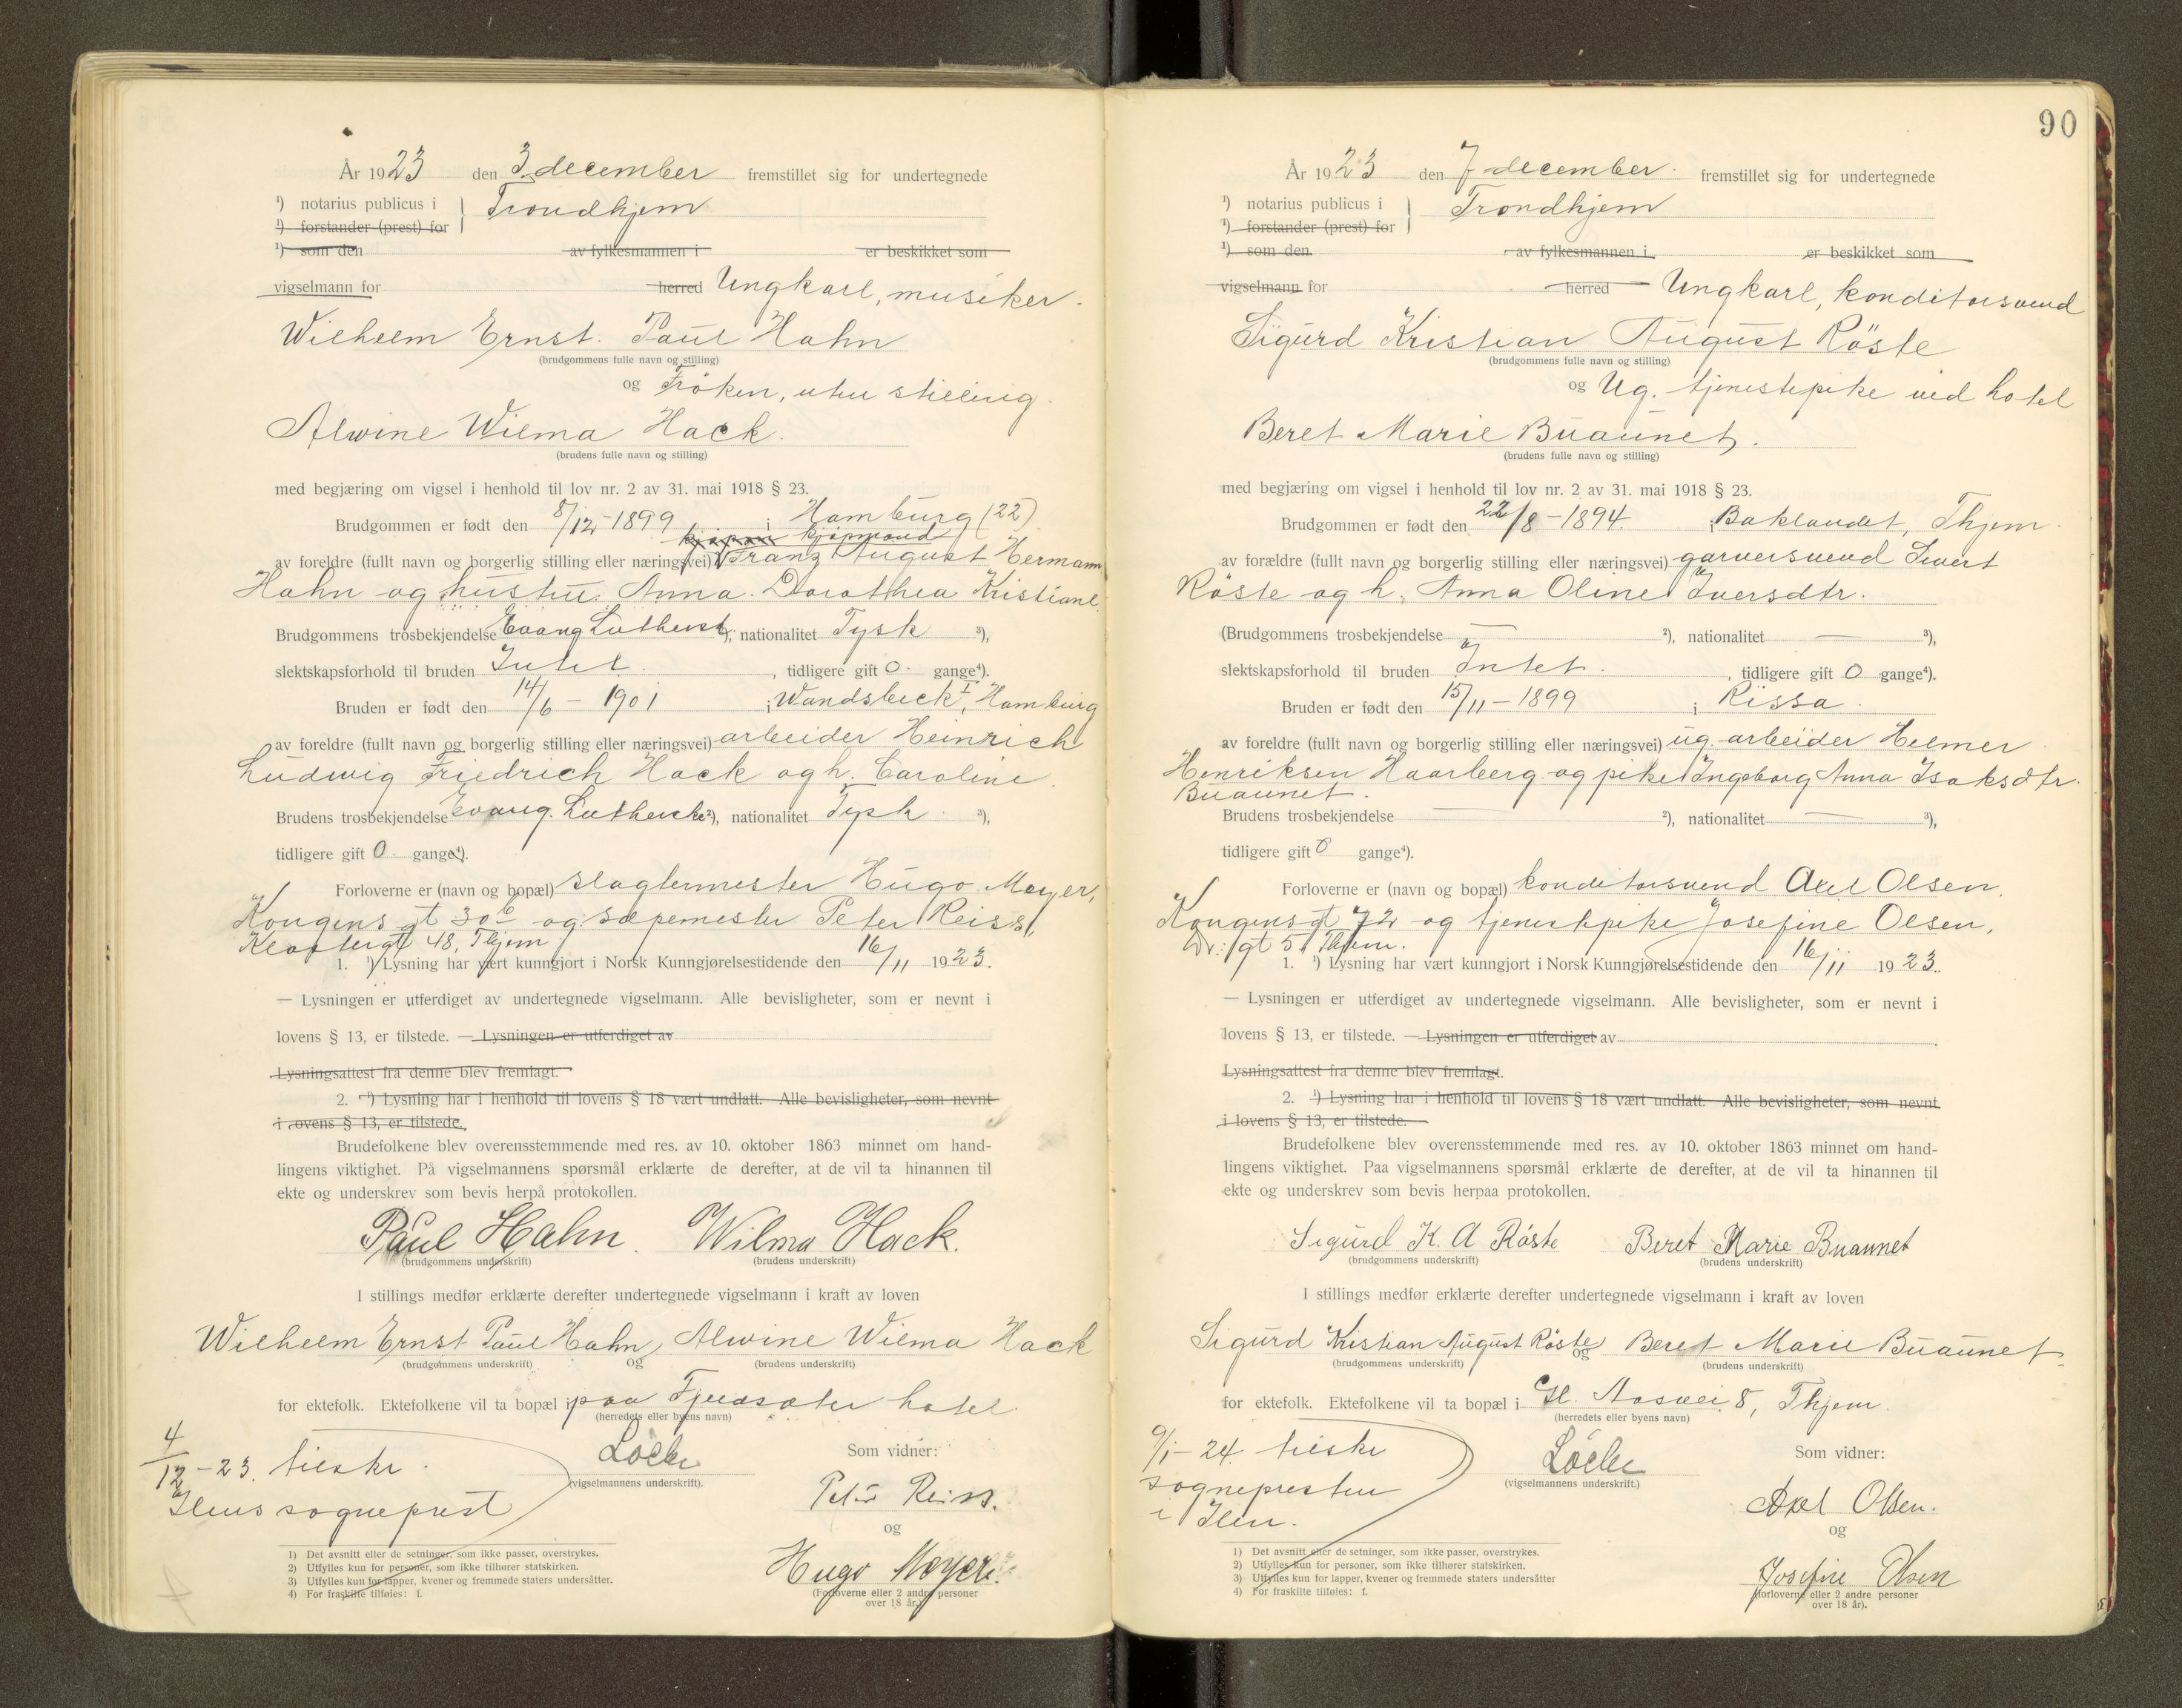 År 1923 den 3. december fremstillet sig for undertegnede
¹) notarius publicus i Trondhjem
¹) forstander (prest) for
¹) som den av fylkesmannen i er beskikket som
vigselmann for herred Ungkarl, musiker.
Wilhelm Ernst Paul Hahn
(brudgommens fulle navn og stilling)
og Frøken, uten stilling.
Alwine Wilma Hack.
(brudens fulle navn og stilling)
med begjæring om vigsel i henhold til lov nr. 2 av 31. mai 1918 § 23.
Brudgommen er født den 8/12-1899 i Hamburg (22)
kjøpmand
av foreldre (fullt navn og borgerlig stilling eller næringsvei) Franz August Hermann
Hahn og hustru Anna Dorothea Kristiane.
Brudgommens trosbekjendelse Evang Luthersk ²), nationalitet Tysk ³),
slektskapsforhold til bruden Intet. , tidligere gift 0 gange⁴).
Bruden er født den 14/6 - 1901 i Wandsbeck I, Hamburg
av foreldre (fullt navn og borgerlig stilling eller næringsvei) arbeider Heinrich
Ludwig Friedrich Hack og h. Caroline.
Brudens trosbekjendelse Evang. Lutherske ²), nationalitet Tysk ³),
tidligere gift 0 gange⁴).
Forloverne er (navn og bopæl) slagtermester Hugo Meyer,
Kongens gt 30 b og sæpemester Peter Reiss,
Klostergt 48, Thjem
1. ¹) Lysning har vært kunngjort i Norsk Kunngjørelsestidende den 16/11 1923.
— Lysningen er utferdiget av undertegnede vigselmann. Alle bevisligheter, som er nevnt i
lovens § 13, er tilstede. — Lysningen er utferdiget av
Lysningsattest fra denne blev fremlagt.
2. ¹) Lysning har i henhold til lovens § 18 vært undlatt. Alle bevisligheter, som nevnt
i lovens § 13, er tilstede.
Brudefolkene blev overensstemmende med res. av 10. oktober 1863 minnet om hand-
lingens viktighet. På vigselmannens spørsmål erklærte de derefter, at de vil ta hinannen til
ekte og underskrev som bevis herpå protokollen.
Paul Hahn. Wilma Hack.
(brudgommens underskrift) (brudens underskrift)
I stillings medfør erklærte derefter undertegnede vigselmann i kraft av loven
Wilhelm Ernst Paul Hahn og Alwine Wilma Hack
(brudgommens underskrift) (brudens underskrift)
for ektefolk. Ektefolkene vil ta bopæl i paa Fjeldsæter hotel.
(herredets eller byens navn)
4/12-23. tilskr.
Ilens sogneprest
(vigselmannens underskrift).
Som vidner:
Peter Reiss.
og
Hugo Meyer.
(Forloverne eller 2 andre personer
over 18 år.)
1) Det avsnitt eller de setninger, som ikke passer, overstrykes.
2) Utfylles kun for personer, som ikke tilhører statskirken.
3) Utfylles kun for lapper, kvener og fremmede staters undersåtter.
4) For fraskilte tilføies: f.
90
År 1923 den 7 december. fremstillet sig for undertegnede
¹) notarius publicus i Trondhjem
¹) forstander (prest) for
¹) som den av fylkesmannen i er beskikket som
vigselmann for herred Ungkarl, konditorsvend
Sigurd Kristian August Röste
(brudgommens fulle navn og stilling)
og Ug. tjenestepike ved hotel
Beret Marie Buaunet.
(brudens fulle navn og stilling)
med begjæring om vigsel i henhold til lov nr. 2 av 31. mai 1918 § 23.
Brudgommen er født den 22/8-1894 i Baklandet, Thjem.
av forældre (fullt navn og borgerlig stilling eller næringsvei) garversvend Sivert
Röste og h. Anna Oline Iversdtr.
(Brudgommens trosbekjendelse — ²), nationalitet — ³),
slektskapsforhold til bruden Intet. , tidligere gift 0 gange⁴).
Bruden er født den 15/11-1899 i Rissa.
av foreldre (fullt navn og borgerlig stilling eller næringsvei) ug. arbeider Helmer
Henriksen Haarberg og pike Ingeborg Anna Isaksdtr.
Buaunet.
Brudens trosbekjendelse — ²), nationalitet — ³),
tidligere gift 0 gange⁴).
Forloverne er (navn og bopæl) konditorsvend Axel Olsen,
Kongensgt 72 og tjenestepike Josefine Olsen,
gt 5, Thjem.
1. ¹) Lysning har vært kunngjort i Norsk Kunngjørelsestidende den 16/11 1923.
— Lysningen er utferdiget av undertegnede vigselmann. Alle bevisligheter, som er nevnt i
lovens § 13, er tilstede. — Lysningen er utferdiget av
Lysningsattest fra denne blev fremlagt.
2. ¹) Lysning har i henhold til lovens § 18 vært undlatt. Alle bevisligheter, som nevnt
i lovens § 13, er tilstede.
Brudefolkene blev overensstemmende med res. av 10. oktober 1863 minnet om hand-
lingens viktighet. Paa vigselmannens spørsmål erklærte de derefter, at de vil ta hinannen til
ekte og underskrev som bevis herpaa protokollen.
Sigurd K. A Röste Beret Marie Buaunet
(brudgommens underskrift) (brudens underskrift)
I stillings medfør erklærte derefter undertegnede vigselmann i kraft av loven
Sigurd Kristian August Röste og Beret Marie Buaunet
(brudgommens underskrift) (brudens underskrift)
for ektefolk. Ektefolkene vil ta bopæl i Gl. Aasvei 8, Thjem.
(herredets eller byens navn)
9/1-24. tilskr
sognepresten
i Ilen.
(vigselmannens underskrift.)
Som vidner:
Axel Olsen.
og
Josefine Olsen
(forloverne eller 2 andre personer
over 18 år).
1) Det avsnitt eller de setninger, som ikke passer, overstrykes.
2) Utfylles kun for personer, som ikke tilhører statskirken.
3) Utfylles kun for lapper, kvener og fremmede staters undersåtter
4) For fraskilte tilføies: f.